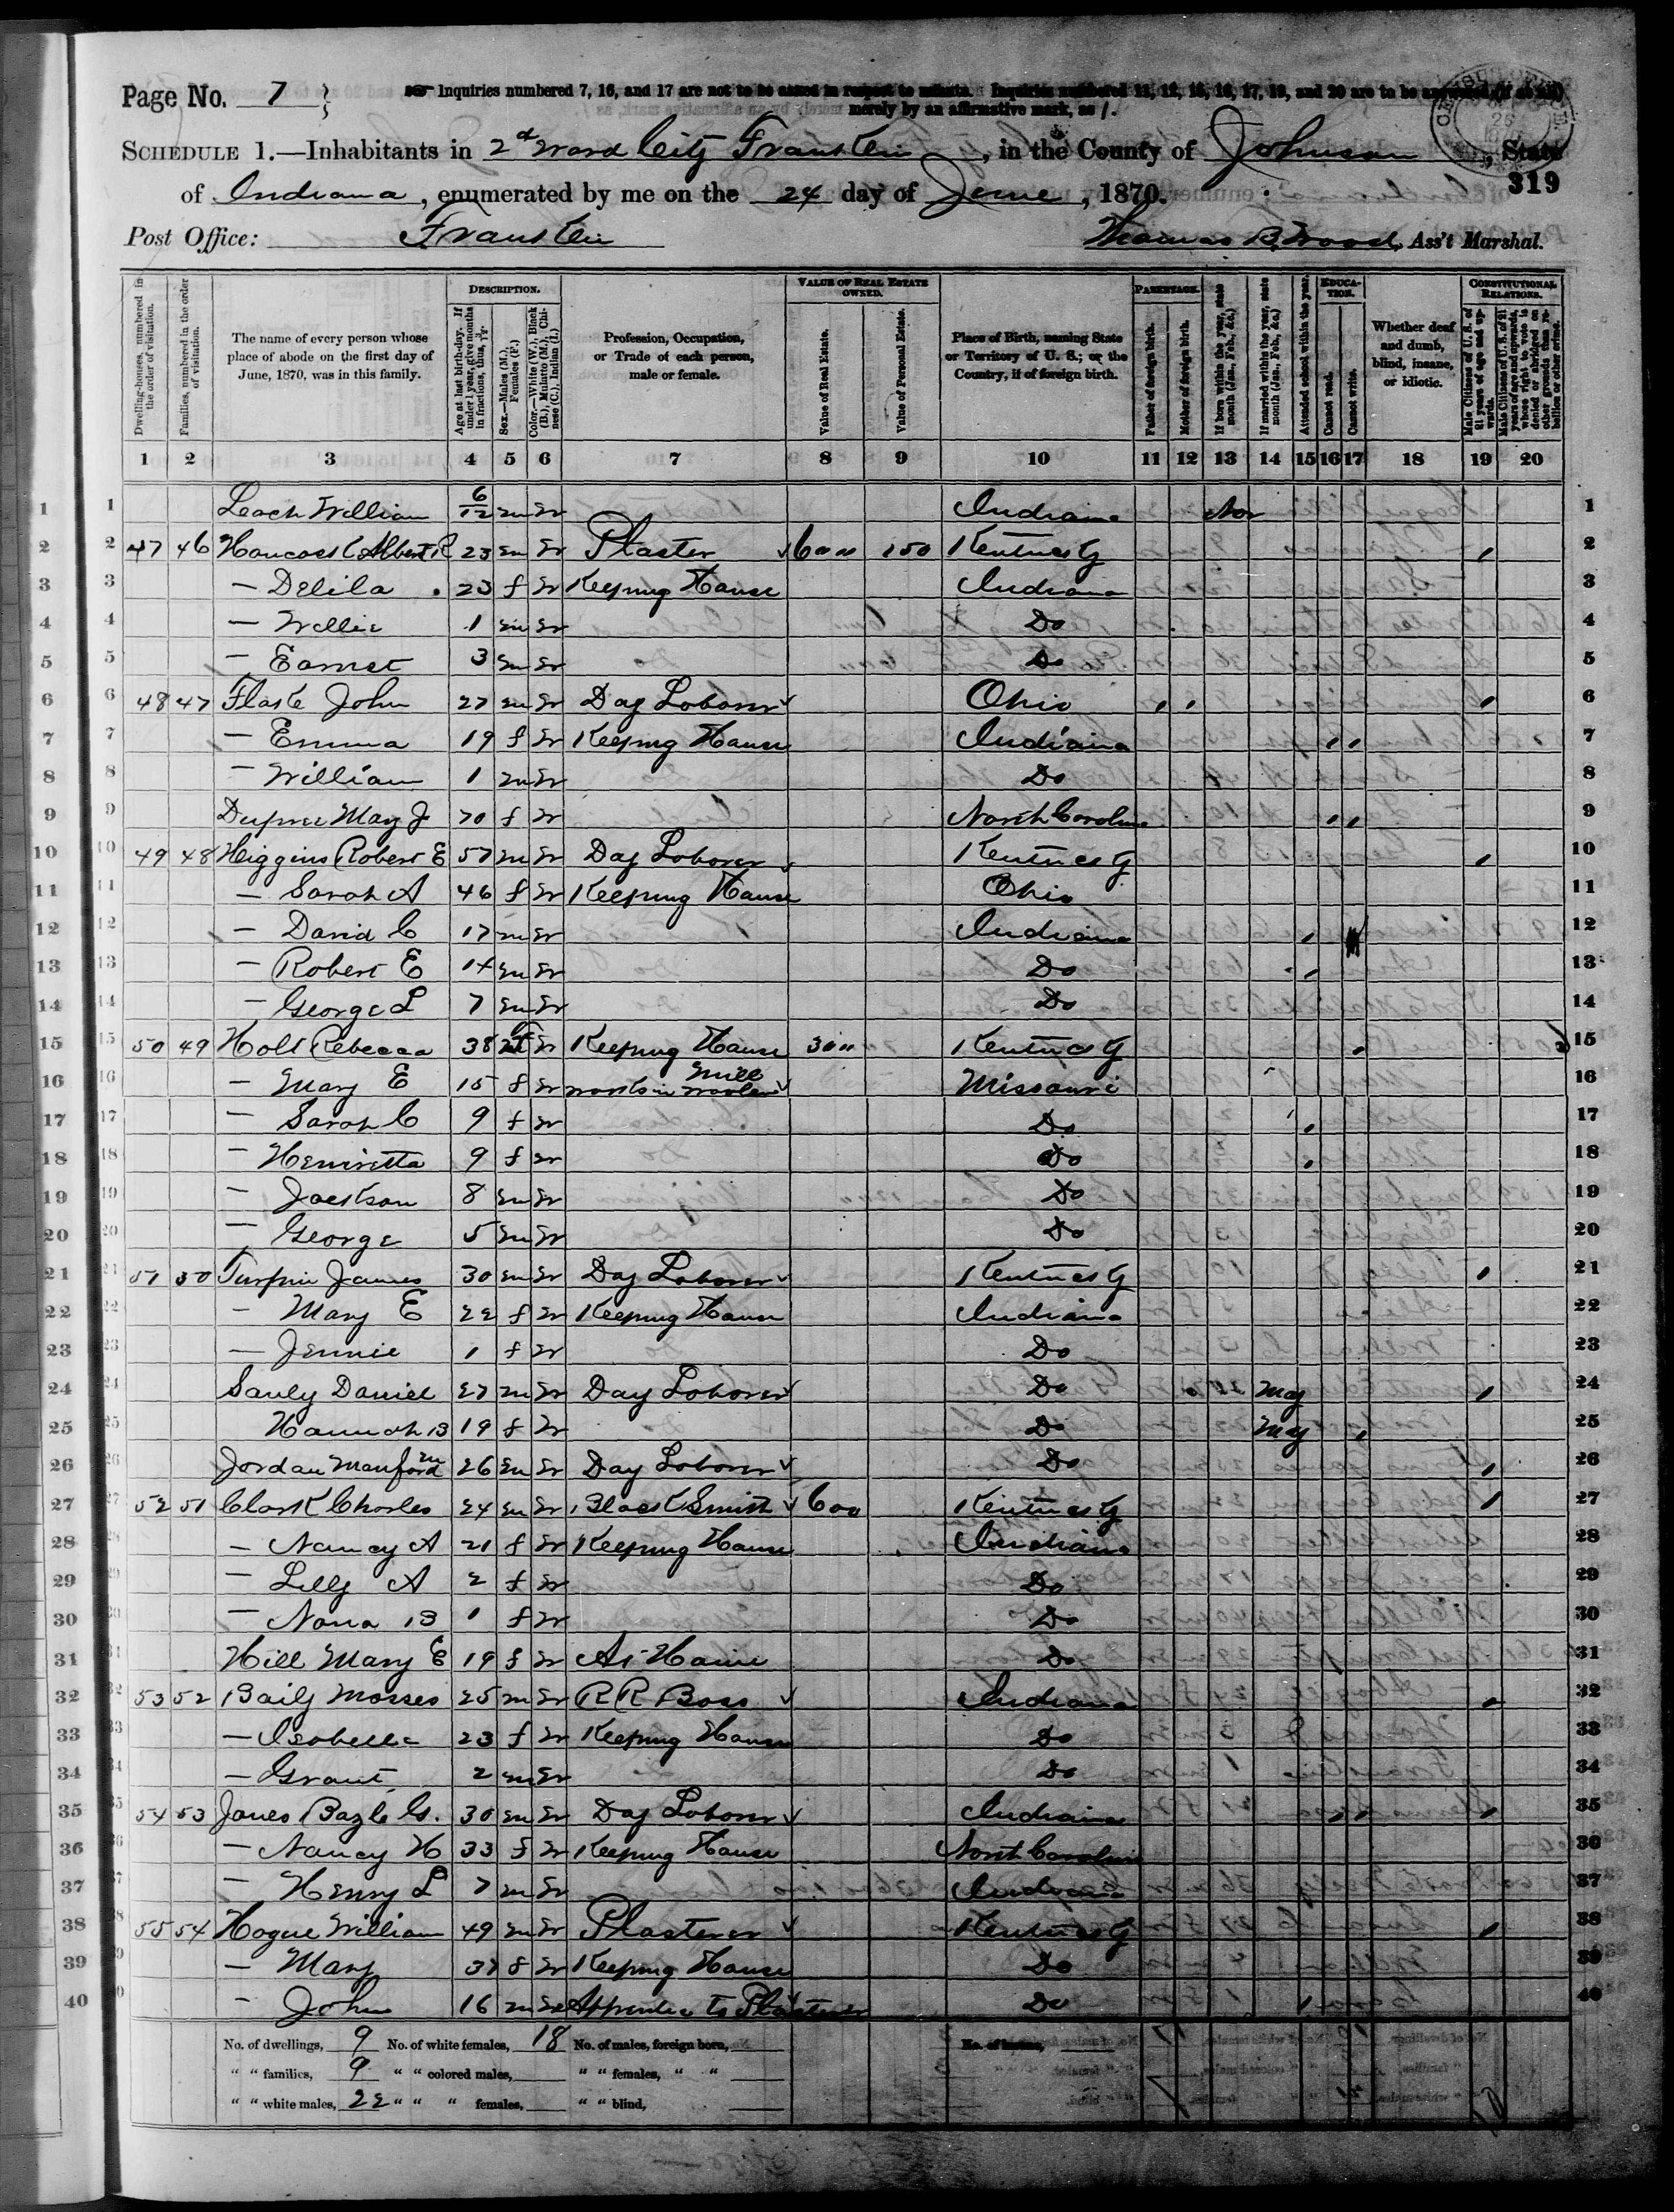 Page No. 7
☞ Inquiries numbered 7, 16, and 17 are not to be asked in respect to infants. Inquiries numbered 11, 12, 15, 16, 17, 19, and 20 are to be answered (if at all)
merely by an affirmative mark, as /.
SCHEDULE 1.—Inhabitants in 2d Ward City Franklin, in the County of Johnson, State
319
of Indiana, enumerated by me on the 24 day of June, 1870.
Post Office: Franklin Thomas B. Wood, Ass't Marshal.
Dwelling-houses, numbered in the order of visitation.
Families, numbered in the order of visitation.
The name of every person whose place of abode on the first day of June, 1870, was in this family.
DESCRIPTION.
Age at last birth-day. If under 1 year, give months in fractions, thus, 3/12.
Sex.—Males (M.), Females (F.)
Color.—White (W.), Black (B.), Mulatto (M.), Chinese (C.), Indian (I.)
Profession, Occupation, or Trade of each person, male or female.
VALUE OF REAL ESTATE OWNED.
Value of Real Estate.
Value of Personal Estate.
Place of Birth, naming State or Territory of U. S.; or the Country, if of foreign birth.
PARENTAGE.
Father of foreign birth.
Mother of foreign birth.
If born within the year, state month (Jan., Feb., &c.)
If married within the year, state month (Jan., Feb., &c.)
Attended school within the year.
EDUCATION.
Cannot read.
Cannot write.
Whether deaf and dumb, blind, insane, or idiotic.
CONSTITUTIONAL RELATIONS.
Male Citizens of U. S. of 21 years of age and upwards.
Male Citizens of U. S. of 21 years of age and upwards, whose right to vote is denied or abridged on other grounds than rebellion or other crime.
1 2 3 4 5 6 7 8 9 10 11 12 13 14 15 16 17 18 19 20
1 Leach William 6/12 m W Indiana Nov 1
2 47 46 Hancock Albert R 23 m W Plaster 600 150 Kentucky / 2
3 — Delila 23 f W Keeping House Indiana 3
4 — Willie 1 m W Do 4
5 — Earnest 3 m W Do 5
6 48 47 Flask John 27 m W Day Laborer Ohio / / / 6
7 — Emma 19 f W Keeping House Indiana / / 7
8 — William 1 m W Do 8
9 Dupree Mary J 70 f W North Carolina / / 9
10 49 48 Higgins Robert E 57 m W Day Laborer Kentucky / 10
11 — Sarah A 46 f W Keeping House Ohio 11
12 — David C 17 m W Indiana / 12
13 — Robert E 14 m W Do / 13
14 — George L 7 m W Do 14
15 50 49 Holt Rebecca 38 f W Keeping House 300 Kentucky / 15
16 — Mary E 15 f W works in Woolen Mill Missouri 16
17 — Sarah C 9 f W Do / 17
18 — Henrietta 9 f W Do / 18
19 — Jackson 8 m W Do 19
20 — George 5 m W Do 20
21 51 50 Turpin James 30 m W Day Laborer Kentucky / 21
22 — Mary E 22 f W Keeping House Indiana 22
23 — Jennie 1 f W Do 23
24 Sauly Daniel 27 m W Day Laborer Do May / 24
25 Hannah B 19 f W Do May / 25
26 Jordan Manford M 26 m W Day Laborer Do / 26
27 52 51 Clark Charles 24 m W Black Smith 600 Kentucky / 27
28 — Nancy A 21 f W Keeping House Indiana 28
29 — Lilly A 2 f W Do 29
30 — Nora B 1 f W Do 30
31 Hill Mary E 19 f W At Home Do 31
32 53 52 Baily Mosses 25 m W R R Boss Indiana / 32
33 — Isabella 23 f W Keeping House Do 33
34 — Grant 2 m W Do 34
35 54 53 Jones Bazle G. 30 m W Day Laborer Indiana / / / 35
36 — Nancy H 33 f W Keeping House North Carolina 36
37 — Henry L 7 m W Indiana 37
38 55 54 Hogue William 49 m W Plasterer Kentucky / 38
39 — Mary 37 f W Keeping House Do 39
40 — John 16 m W Apprentice to Plasterer Do / 40
No. of dwellings, 9 No. of white females, 18 No. of males, foreign born, No. of insane,
" " families, 9 " " colored males, " " females, " "
" " white males, 22 " " " females, " " blind,